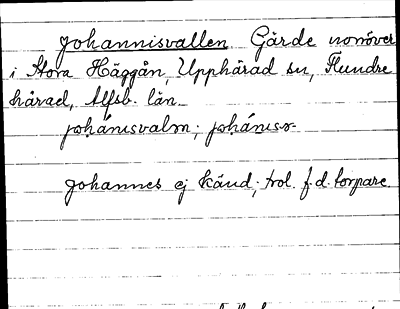 Johannisvallen Gärde norröver
i Stora Häggån, Upphärad sn, Flundre
härad, Älfsb. län.
johánisvalm; johánisn-
Johannes ej känd; trol. f.d. torpare.